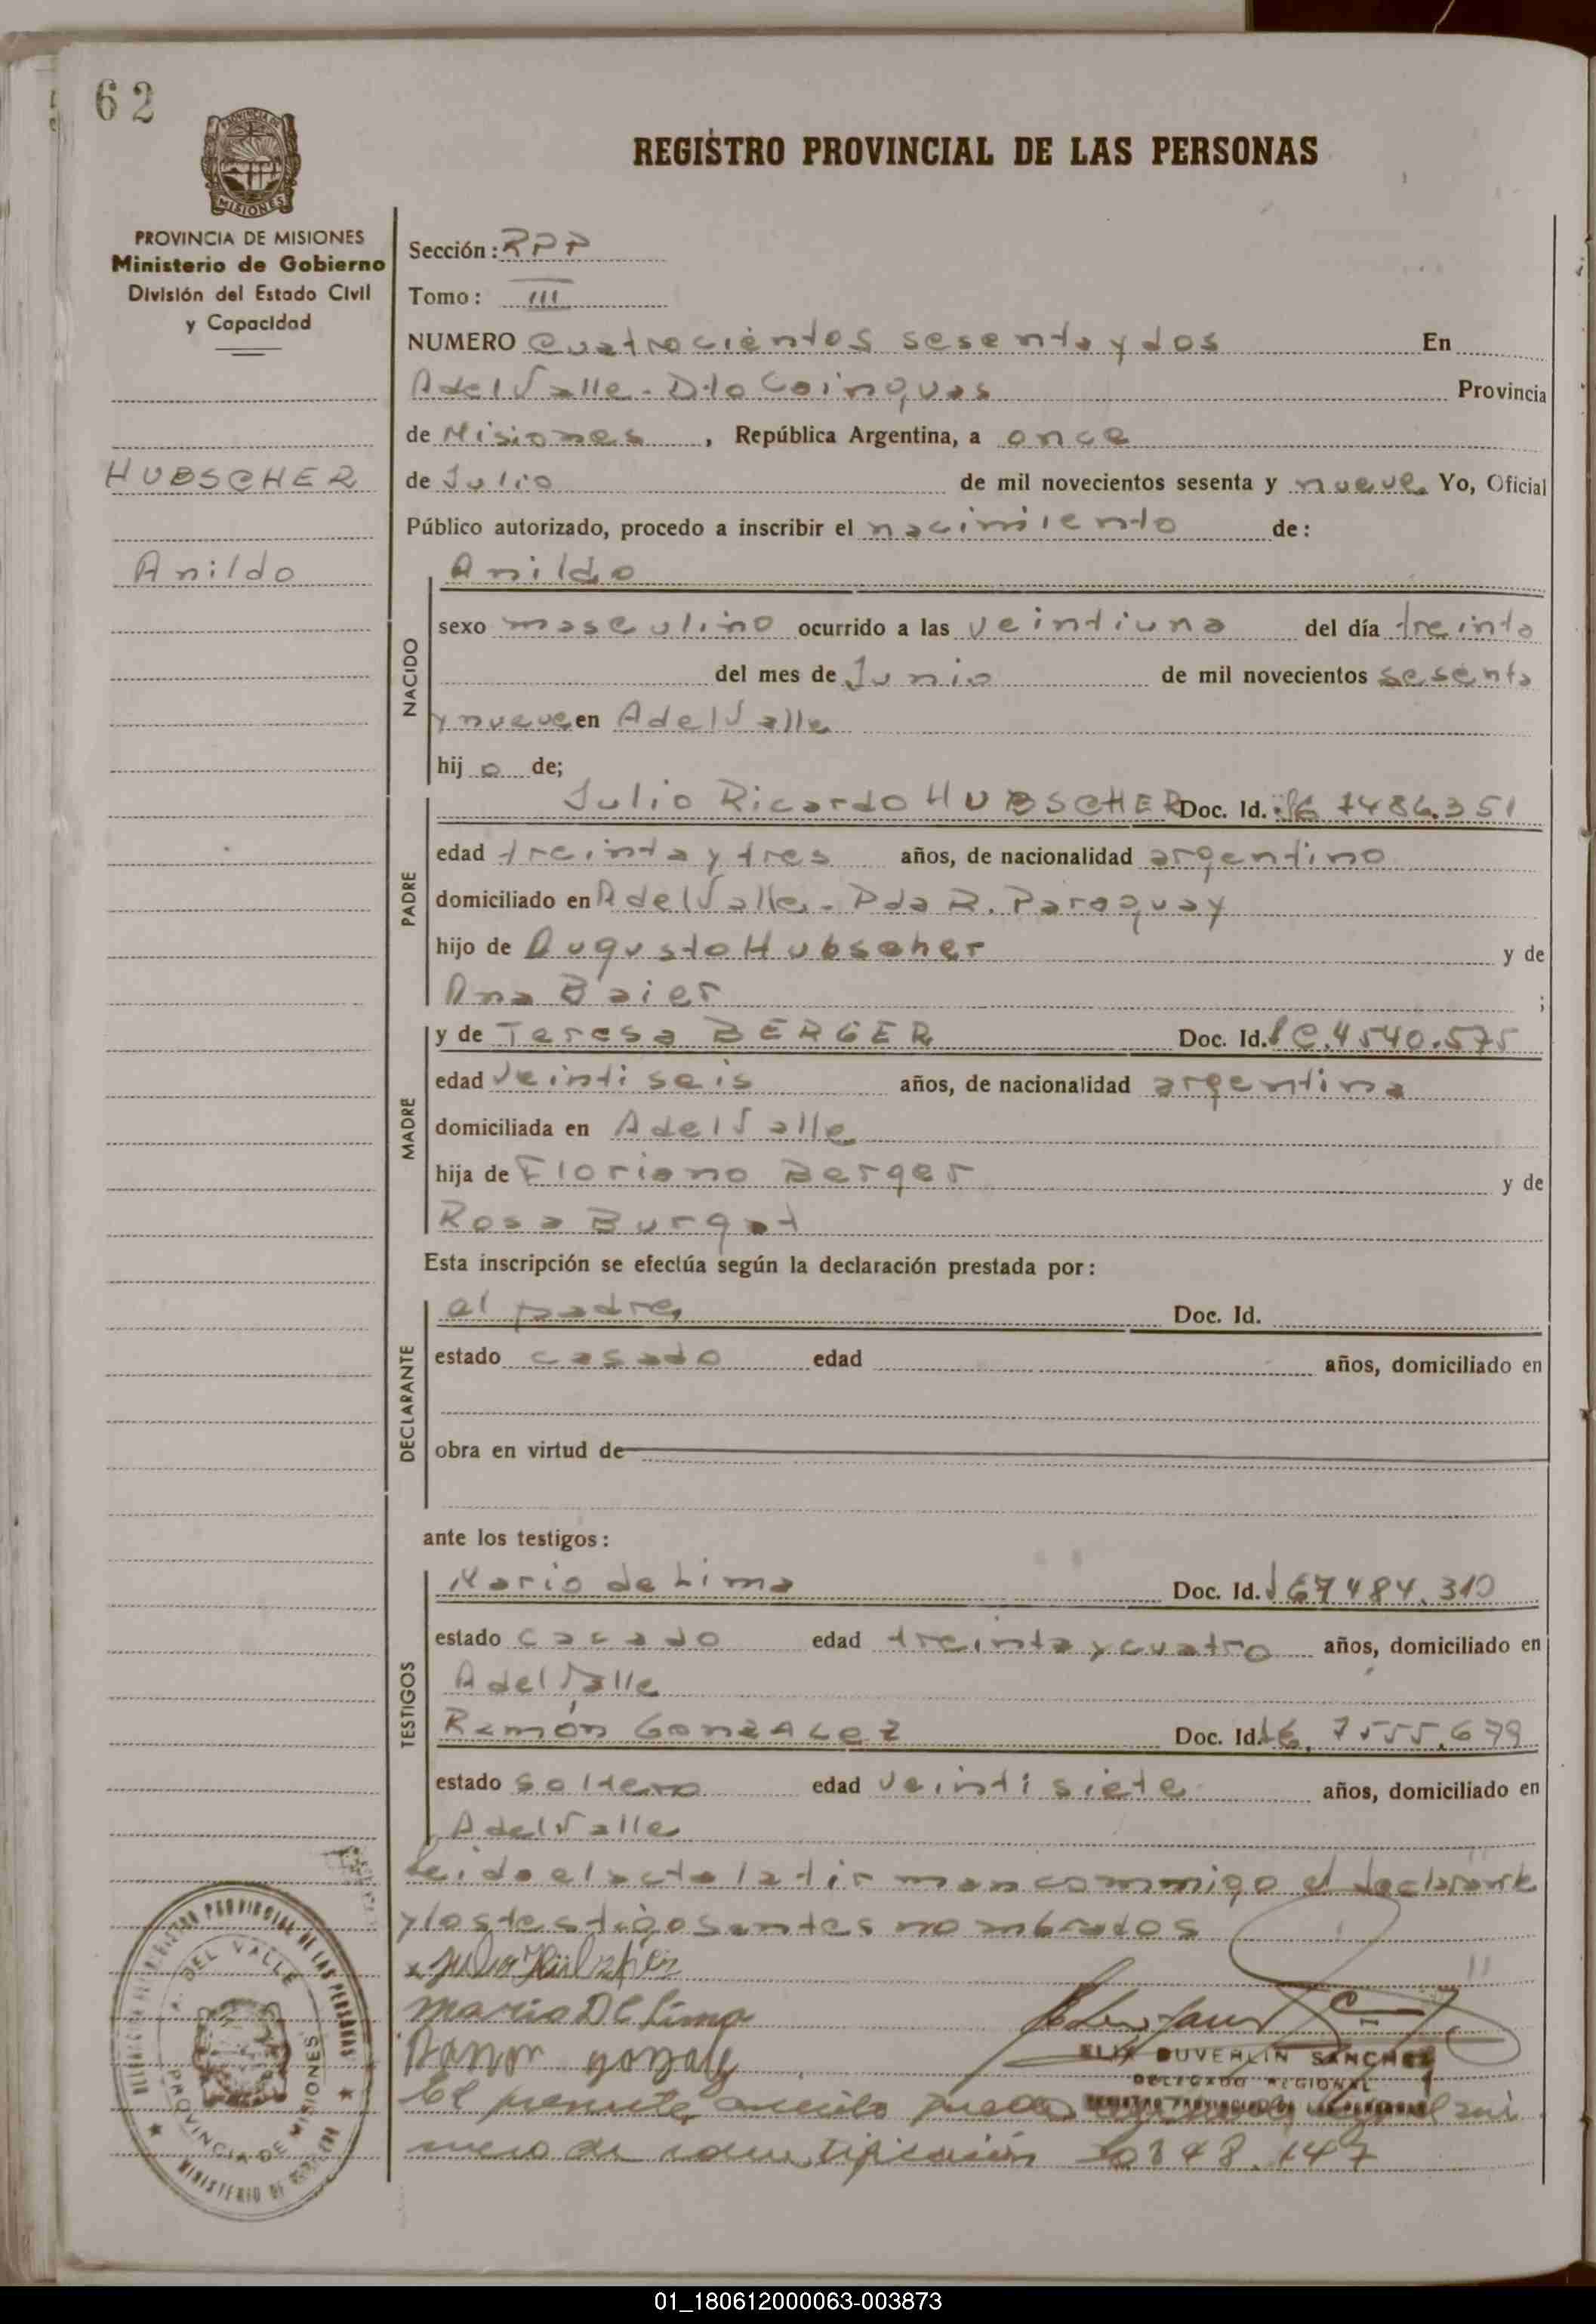 62
PROVINCIA DE
MISIONES
REGISTRO PROVINCIAL DE LAS PERSONAS
PROVINCIA DE MISIONES
Ministerio de Gobierno
División del Estado Civil
y Capacidad
HUBSCHER
Anildo
Sección: RPP
Tomo: III
NUMERO cuatrocientos sesenta y dos En
A del Valle - Dto Cainguas Provincia
de Misiones, República Argentina, a once
de Julio de mil novecientos sesenta y nueve Yo, Oficial
Público autorizado, procedo a inscribir el nacimiento de:
NACIDO
Anildo
sexo masculino ocurrido a las veintiuna del día treinta
del mes de Junio de mil novecientos sesenta
y nueve en A del Valle
hijo de;
PADRE
Julio Ricardo HUBSCHER Doc. Id. 7486.351
edad treinta y tres años, de nacionalidad argentino
domiciliado en A del Valle - Pda R. Paraguay
hijo de Augusto Hubscher y de
Ana Baier ;
MADRE
y de Teresa BERGER Doc. Id. LC.4540.575
edad veintiseis años, de nacionalidad argentina
domiciliada en A del Valle
hija de Floriano Berger y de
Rosa Burgat
Esta inscripción se efectúa según la declaración prestada por:
DECLARANTE
el padre Doc. Id.
estado casado edad años, domiciliado en
obra en virtud de
ante los testigos:
TESTIGOS
Mario de Lima Doc. Id. 7484.310
estado casado edad treinta y cuatro años, domiciliado en
A del Valle
Ramón GONZALEZ Doc. Id. 7555.679
estado soltero edad veintisiete años, domiciliado en
A del Valle
Leida el acta la firman conmigo el declarante
y los testigos antes nombrados
Mario De Lima
Ramon Gonzalez
SANCHEZ
DELEGADO REGIONAL
El presente
mero de identificación 20848.147
A. DEL VALLE
PROVINCIA DE MISIONES
MINISTERIO DE GOBIERNO
01_180612000063-003873